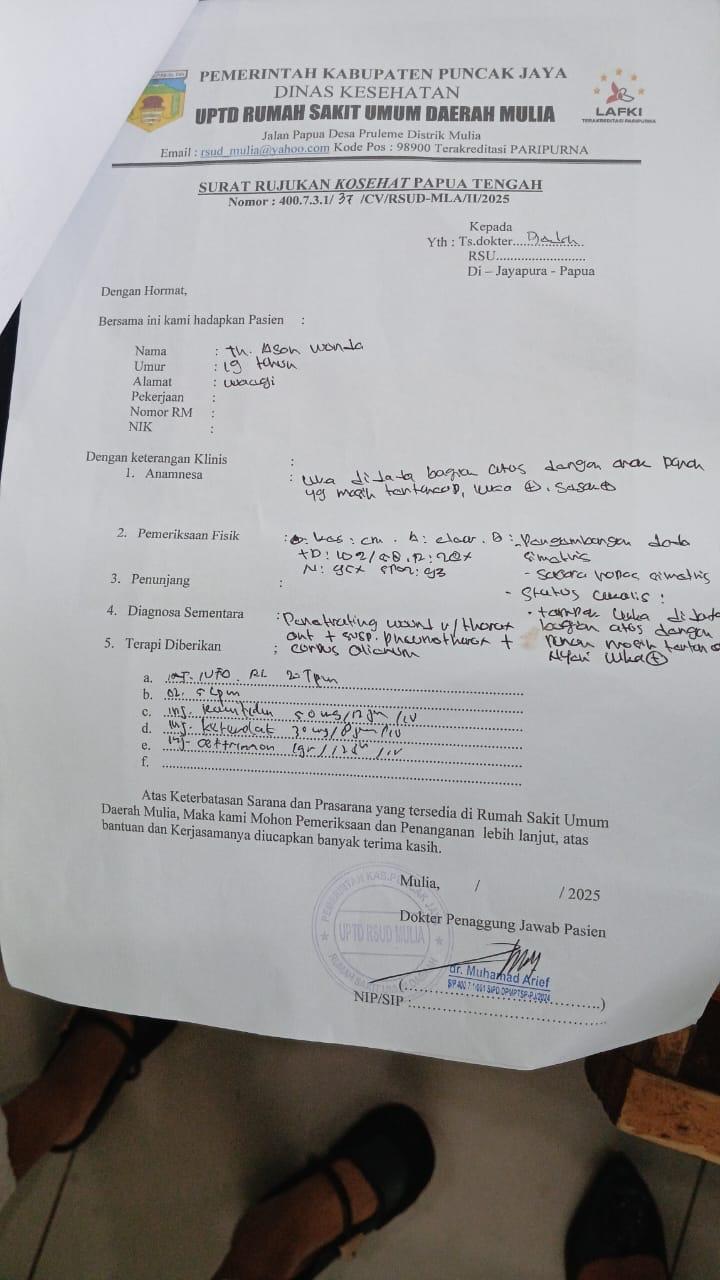 PEMERINTAH KABUPATEN PUNCAK JAYA
DINAS KESEHATAN
UPTD RUMAH SAKIT UMUM DAERAH MULIA
Jalan Papua Desa Pruleme Distrik Mulia
Email : rsud_mulia@yahoo.com Kode Pos : 98900 Terakreditasi PARIPURNA
LAFKI
TERAKREDITASI PARIPURNA
SURAT RUJUKAN KOSEHAT PAPUA TENGAH
Nomor : 400.7.3.1/ 37 /CV/RSUD-MLA/II/2025
Kepada
Yth : Ts.dokter....
RSU..........................
Di – Jayapura - Papua
Dengan Hormat,
Bersama ini kami hadapkan Pasien :
Nama : Tn. Ason Wonda
Umur : 19 tahun
Alamat :
Pekerjaan :
Nomor RM :
NIK :
Dengan keterangan Klinis :
1. Anamnesa : Luka di dada bagian atas dengan anak panah
yg masih tertancap, luka ⊕. sesak ⊕
2. Pemeriksaan Fisik : Kes : cm. A : clear. B : Pengembangan dada simetris
TD : 102/68. R : 28x
N : 95x SPO2 : 93
- suara napas simetris
3. Penunjang :
- Status Lokalis :
• tampak luka di dada
bagian atas dengan
panah masih
Nyeri luka ⊕
4. Diagnosa Sementara : Penetrating wound r/ thorax
ant + susp. pneumothorax +
corpus alienum
5. Terapi Diberikan :
a. IVFD RL 20 Tpm
b. O2. 5 Lpm
c. inj. ranitidin 50 mg/12 jm /iv
d. inj. ketorolac 30 mg/8 jm/iv
e. inj. ceftriaxon 1gr/12 jm /iv
f.
Atas Keterbatasan Sarana dan Prasarana yang tersedia di Rumah Sakit Umum
Daerah Mulia, Maka kami Mohon Pemeriksaan dan Penanganan lebih lanjut, atas
bantuan dan Kerjasamanya diucapkan banyak terima kasih.
Mulia, / / 2025
Dokter Penaggung Jawab Pasien
UPTD RSUD MULIA
dr. Muhamad Arief
NIP/SIP :